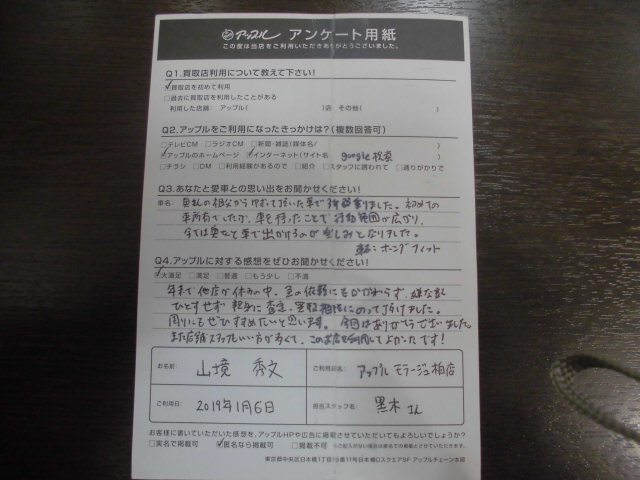 アップル アンケート用紙
この度は当店をご利用いただきありがとうございました。
Q1.買取店利用について教えて下さい!
☑買取店を初めて利用
□過去に買取店を利用したことがある
利用した店舗: アップル( )店 その他( )
Q2.アップルをご利用になったきっかけは?(複数回答可)
□テレビCM □ラジオCM □新聞・雑誌(媒体名/ )
☑アップルのホームページ ☑インターネット(サイト名 google検索 )
□チラシ □DM □利用経験があるので □紹介 □スタッフに誘われて □通りがかりで
Q3.あなたと愛車との思い出をお聞かせください!
車名: 奥さんの祖父からゆずって頂いた車で 乗りました。初めての
車所有でしたが、車を持ったことで行動範囲が広がり、
今では奥さんと車で出かけるのが楽しみとなりました。
車: ホンダ フィット
Q4.アップルに対する感想をぜひお聞かせください!
☑大満足 □満足 □普通 □もう少し □不満
年末で他店が休みの中、急の依頼にもかかわらず、嫌な顔
ひとつせず 親身に査定、買取相談にのって頂けました。
周りにもぜひすすめたいと思います。今回はありがとうございました。
また店舗スタッフもいい方が多くて、このお店を利用してよかったです!
お名前: 山境 秀文
ご利用店名: アップル モラージュ柏店
ご利用日: 2019年1月6日
担当スタッフ名: 黒木さん
お客様に書いていただいた感想を、アップルHPや広告に掲載させていただいてもよろしいでしょうか?
□実名で掲載可 ☑匿名なら掲載可 □掲載不可 ※ご記入がない場合は匿名での掲載とさせていただきます。
東京都中央区日本橋1丁目19番11号日本橋DスクエアBF アップルチェーン本部